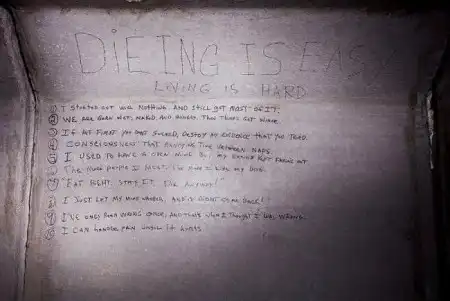 DiEING IS EASY
LIVING IS HARD
① I STARTED OUT WITH NOTHING AND STILL GOT MOST OF IT.
② WE ARE BORN WET, NAKED, AND HUNGRY. THEN THINGS GET WORSE.
③ IF AT FIRST YOU DON'T SUCCEED, DESTROY ALL EVIDENCE THAT YOU TRIED.
④ CONSCIOUSNESS THAT ANNOYING TIME BETWEEN NAPS.
⑤ I USED TO HAVE A OPEN MIND BUT MY BRAINS KEPT FALLING OUT
⑥ THE MORE PEOPLE I MEET, THE MORE I LIKE MY DOG.
⑦ "EAT RIGHT. STAY FIT. DIE ANYWAY!"
⑧ I JUST LET MY MIND WANDER, AND IT DIDN'T COME BACK!
⑨ I'VE ONLY BEEN WRONG ONCE, AND THAT'S WHEN I THOUGHT I WAS WRONG.
⑩ I CAN HANDLE PAIN UNTIL IT HURTS